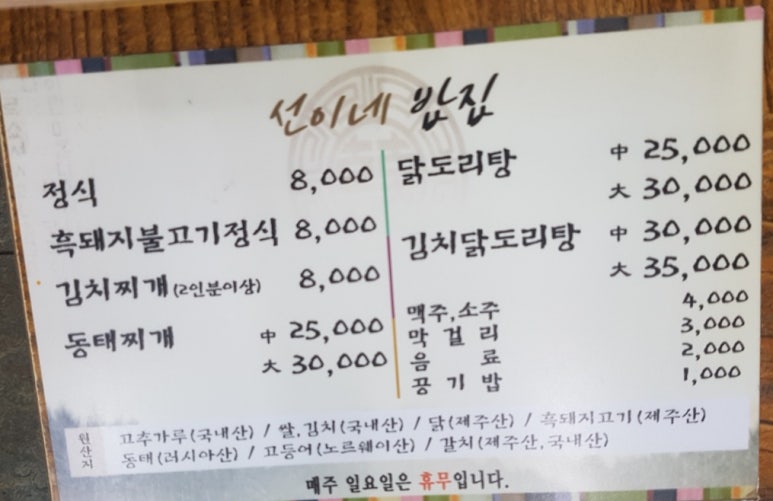 선이네 밥집
정식 8,000
흑돼지불고기정식 8,000
김치찌개(2인분이상) 8,000
동태찌개 中 25,000
大 30,000
닭도리탕 中 25,000
大 30,000
김치닭도리탕 中 30,000
大 35,000
맥주,소주 4,000
막걸리 3,000
음료 2,000
공기밥 1,000
원산지
고추가루(국내산) / 쌀,김치(국내산) / 닭(제주산) / 흑돼지고기(제주산)
동태(러시아산) / 고등어(노르웨이산) / 갈치(제주산,국내산)
매주 일요일은 휴무입니다.